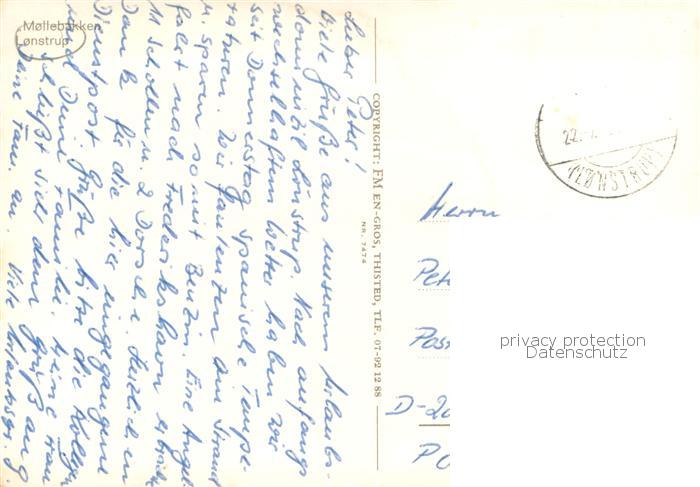 Møllebakken
Lønstrup
Lieber Peter!
Viele Grüße aus unserem Urlaubs-
domizil Lønstrup. Nach anfangs
wechselhaftem Wetter haben wir
seit Donnerstag spanische Tempe-
raturen. Wir faulenzen am Strand
u. sparen somit Benzin. Eine Angel-
fahrt nach Frederikshavn erbrachte
11 Schollen u. 2 Dorsche. Herzlichen
Dank für die hier eingegangene
Dienstpost. Grüße bitte die Kollegen
und Deine Familie. Meine Frau
schließt sich dem Gruß an
Deine Fam. an. Viele
COPYRIGHT: FM EN-GROS, THISTED, TLF. 07-92 12 88
NR. 7474
22.
LØNSTRUP
Herrn
Pet
Pos
D-20
privacy protection
Datenschutz